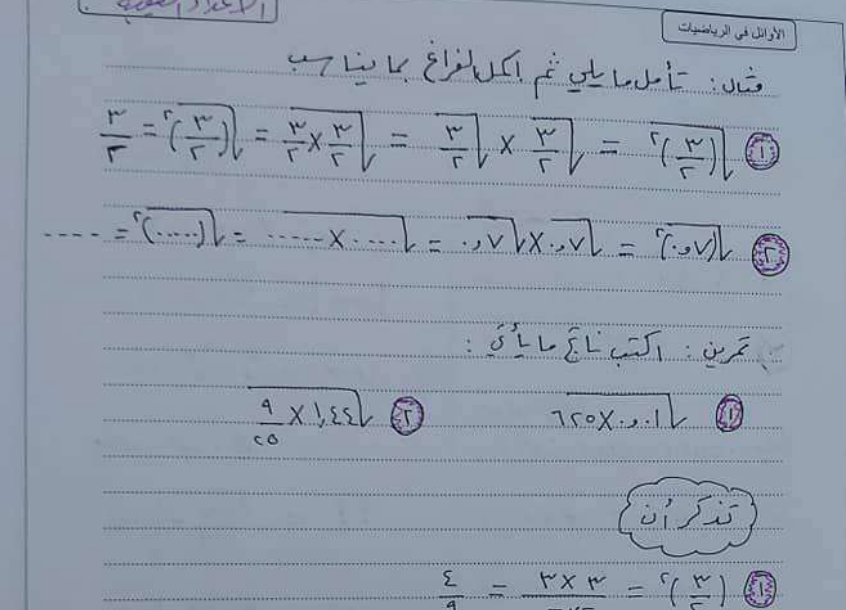 الأوائل في الرياضيات
مثال: تأمل ما يلي ثم اكمل الفراغ بما يناسب
① √(٣/٢)² = √٣/٢ × √٣/٢ = √٣/٢ × ٣/٢ = √(٣/٢)² = ٣/٢
② √(٠,٧)² = √٠,٧ × √٠,٧ = √..... × ..... = √(.....)² = ....
تمرين: اكتب ناتج ما يأتي:
① √٠,٠١ × ٦٢٥ ② √١,٤٤ × ٩/٢٥
تذكر أن
① (٣/٢)² = ٣×٣ = ٤/٩